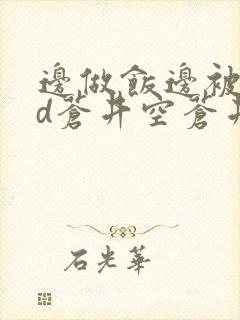 邊做飯邊被
d蒼井空蒼井
石光華